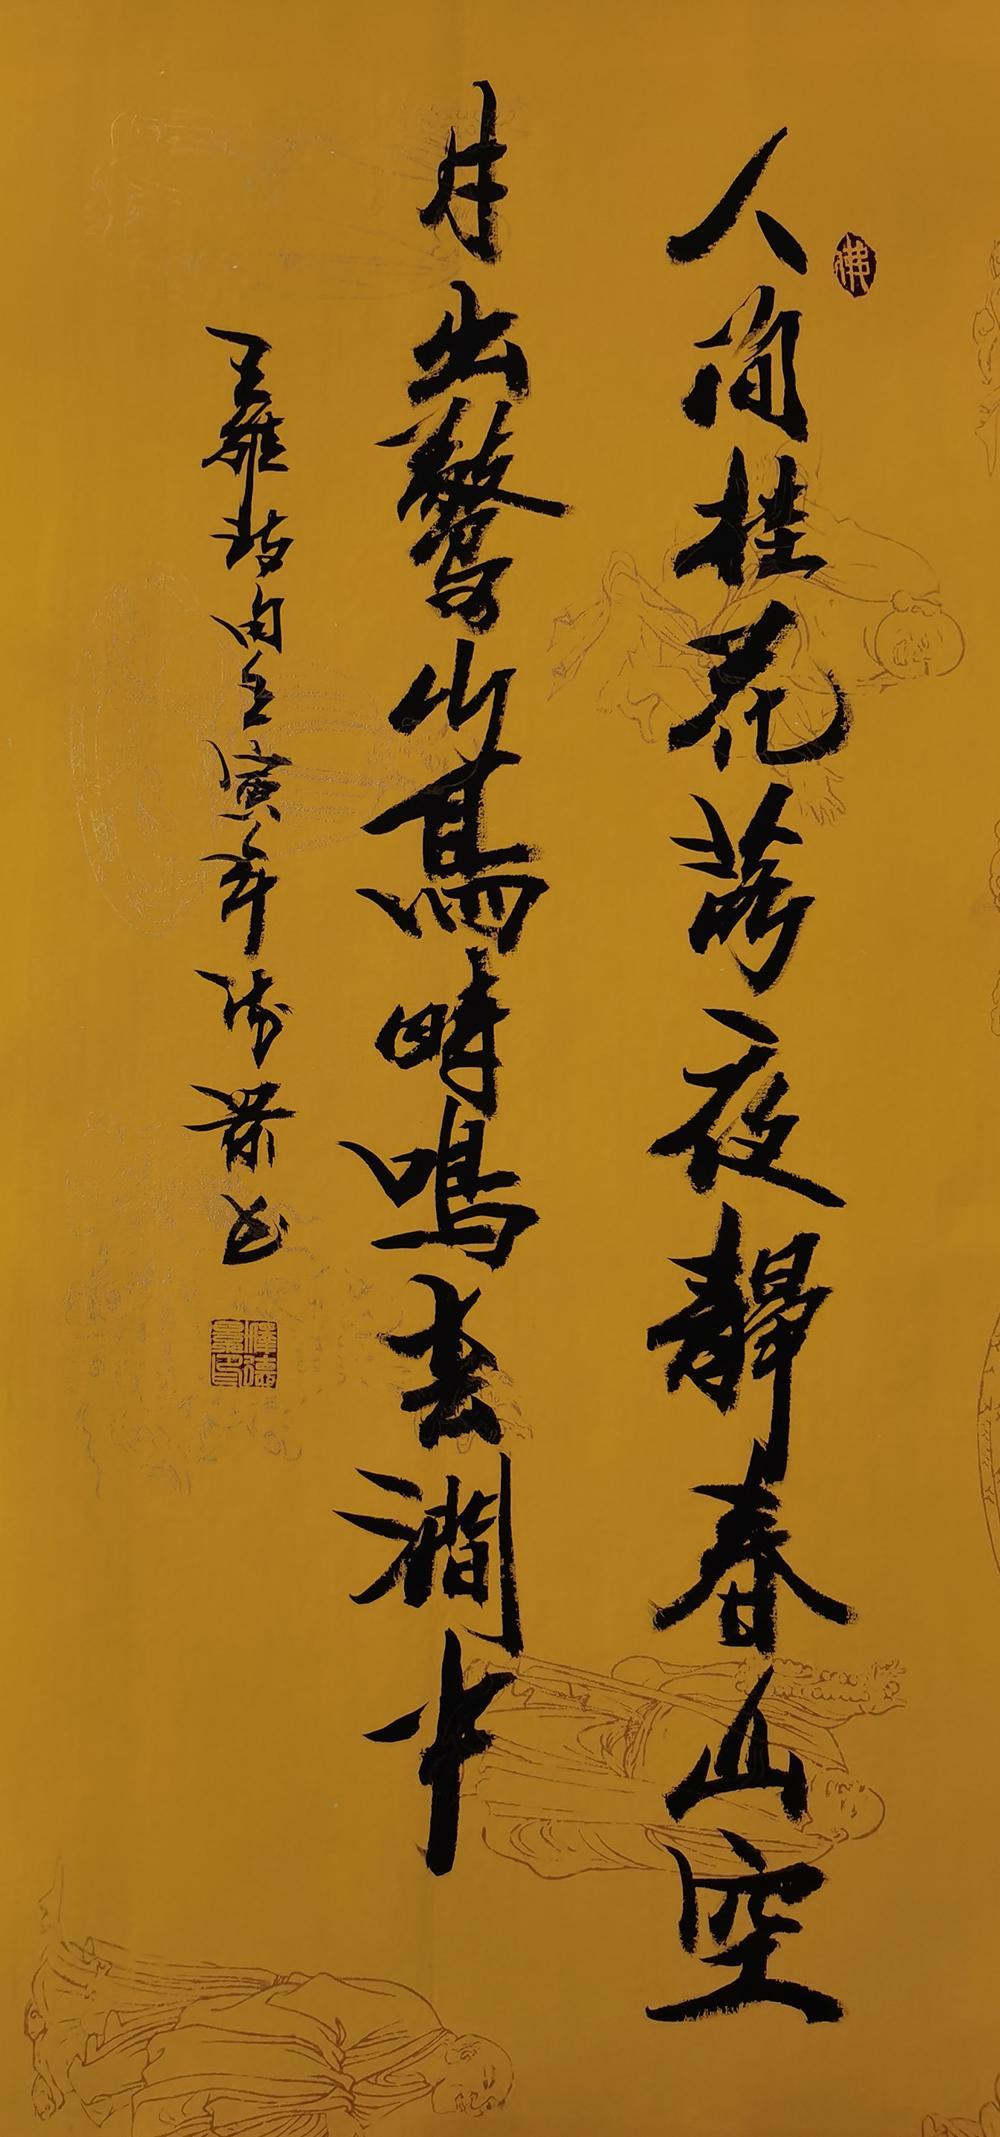 佛
人閒桂花落夜靜春山空
月出驚山鳥時鳴春澗中
王維詩句壬寅年德景书